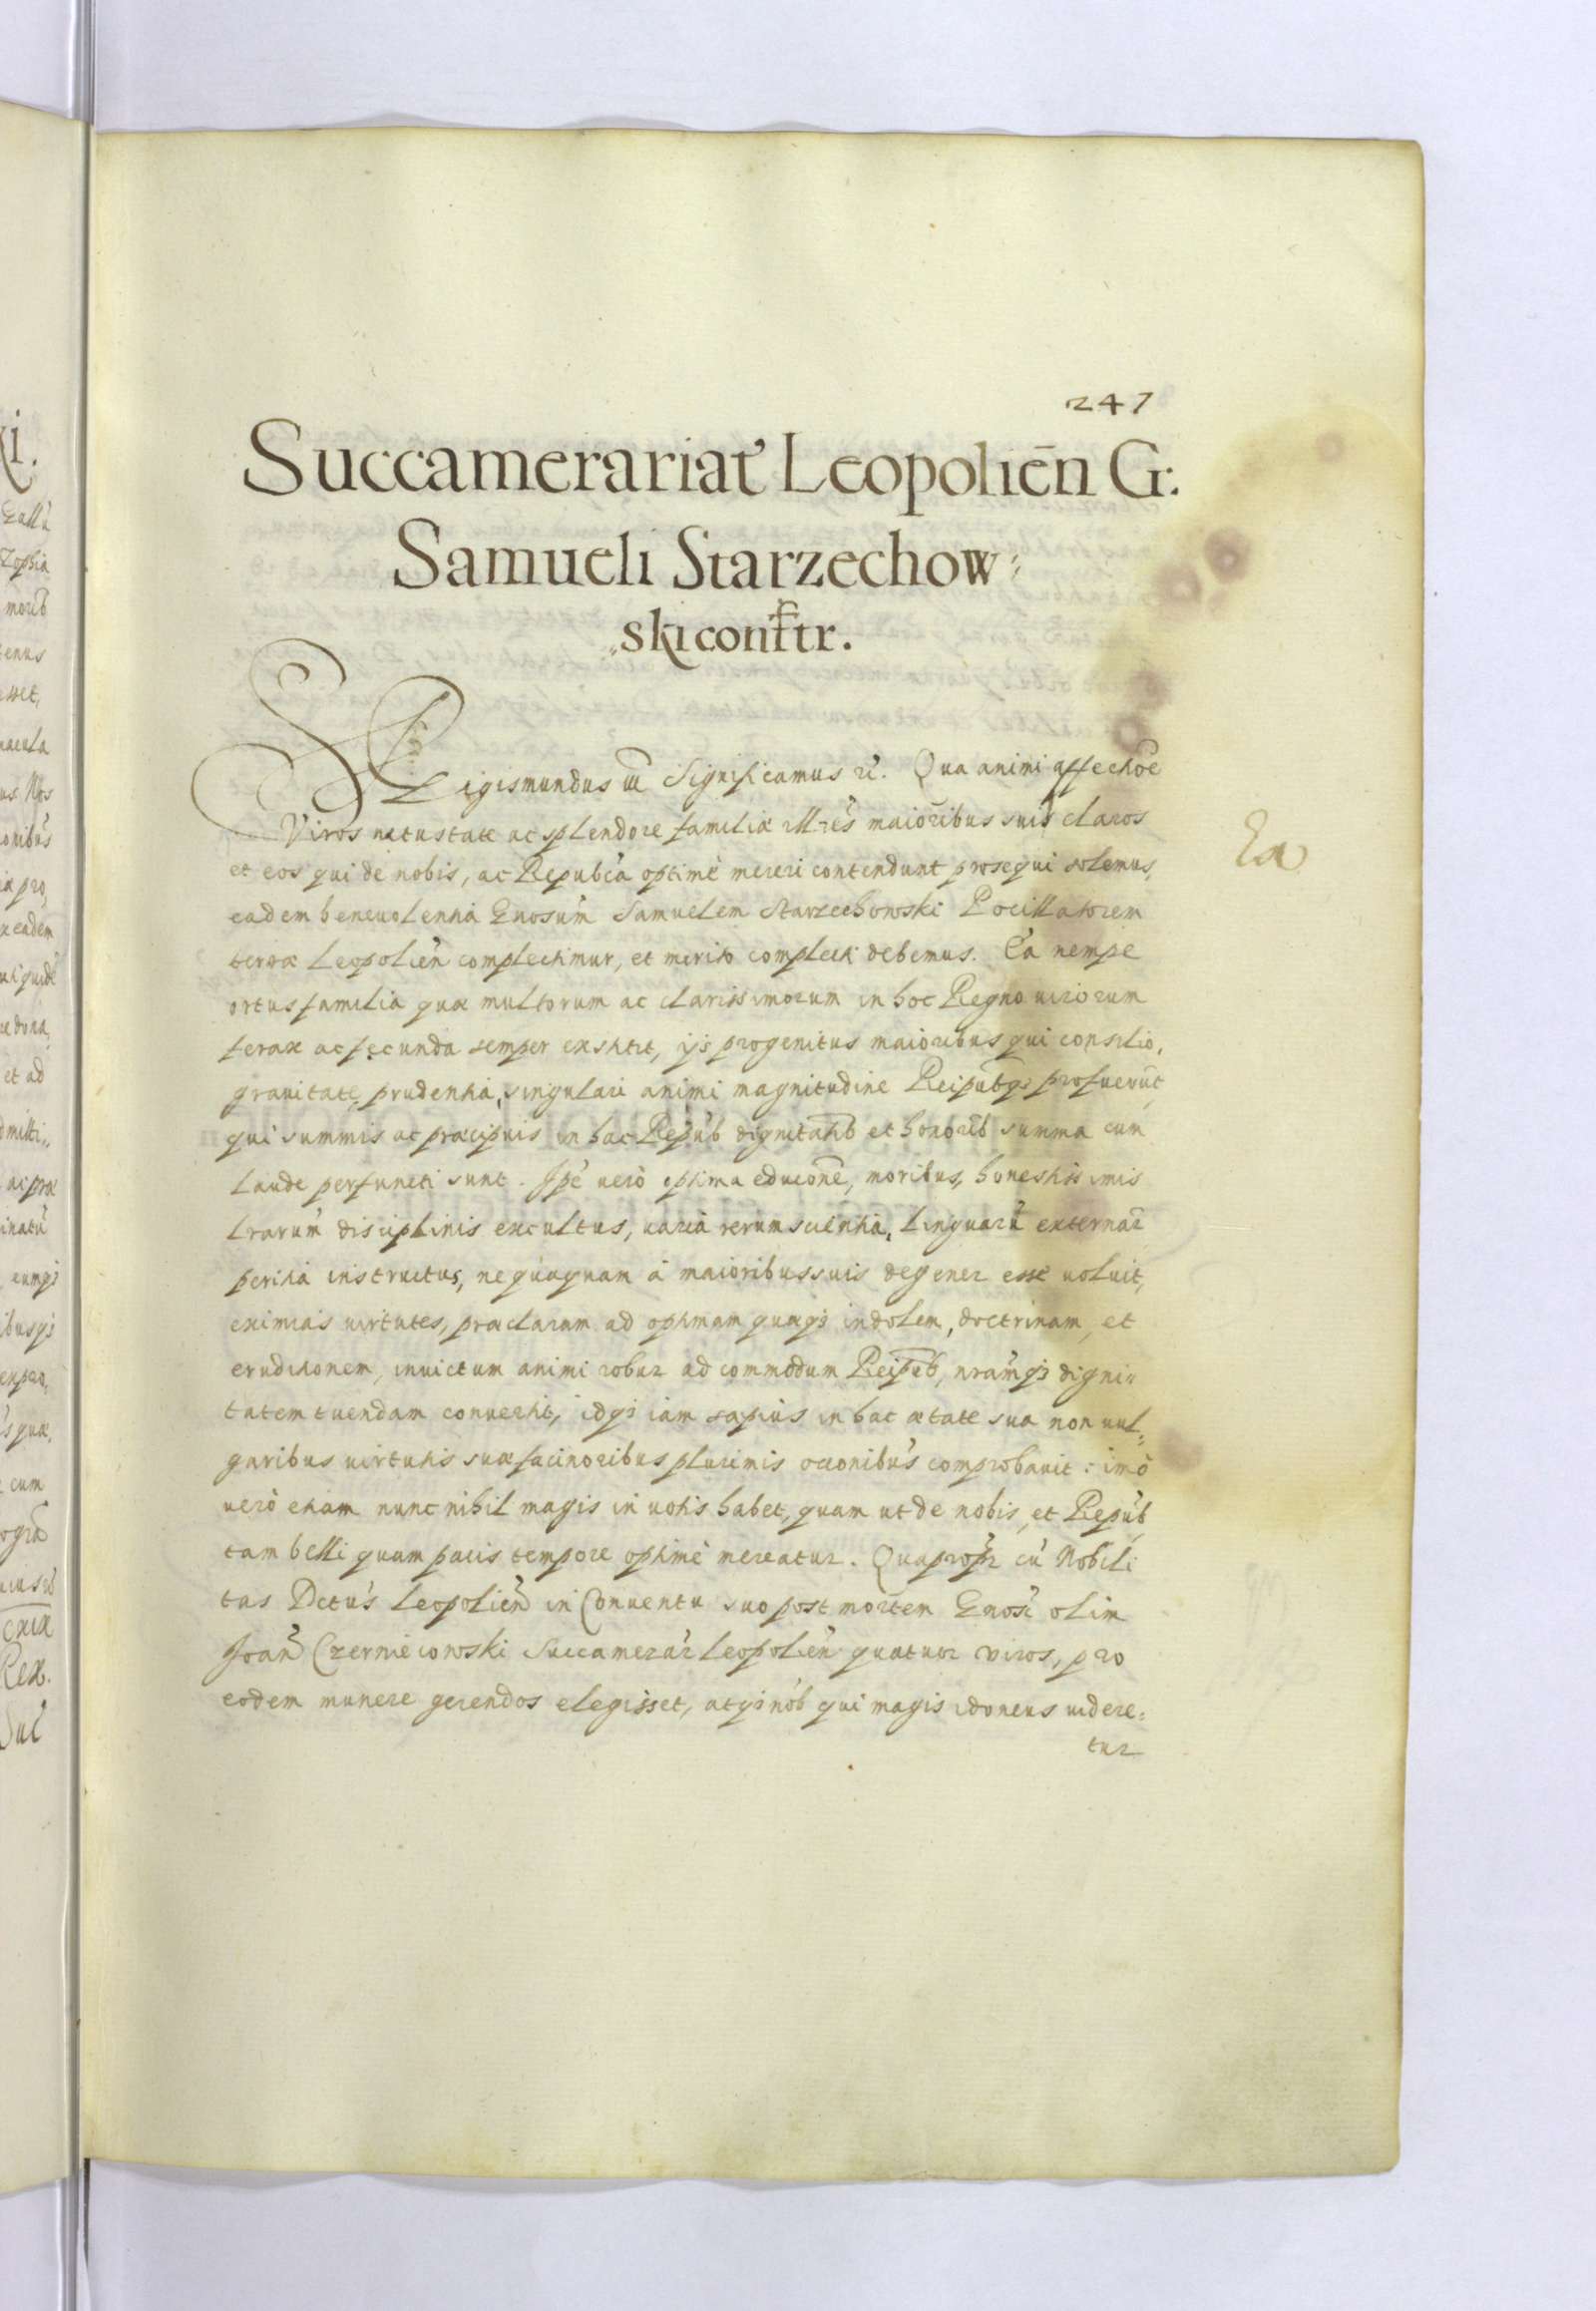 247
Succamerariat' Leopolien̄ G:
Samueli Starzechow=
ski conf̄tr.
Sigismundus III Significamus etc. Qua animi affectioē
Viros uetustate ac splendore familiæ Illres maioribus suis claros
et eos qui de nobis, ac Republ̄ca optimè mereri contendunt prosequi solemus,
eadem beneuolentia Gnosum Samuelem Starzechowski Pocillatorem
terræ Leopolien̄ complectimur, et merito complecti debemus. Ea nempe
ortus familia quæ multorum ac clarissimorum in hoc Regno uirorum
ferax ac fæcunda semper exstitit, ijs progenitus maioribus qui consilio,
grauitate, prudentia, singulari animi magnitudine Reipubq3 profuerūt,
qui summis ac præcipuis in hac Repub dignitatib et honorib summa cum
laude perfuncti sunt. Ipe uerò optima educione, moribus, honestissimis
lrarum disciplinis excultus, uaria rerum scientia, linguarū externar
peritia instructus, nequaquam à maioribus suis degener esse uoluit,
eximias uirtutes, præclaram ad optimam quamq3 indolem, doctrinam, et
eruditionem, inuictum animi robur ad commodum Reipub, nramq3 digni=
tatem tuendam conuertit, idq3 iam sæpius in hac ætate sua non uul=
garibus uirtutis suæ facinoribus plurimis occonibus comprobauit: imò
uerò etiam nunc nihil magis in uotis habet, quam ut de nobis, et Repub,
tam belli quam pacis tempore optimè mereatur. Quapropr cū Nobili
tas Dctus Leopolien̄ in Conuentu suo post mortem Gnosi olim
Joan̄ Czerniecowski Succamerar Leopolien̄ quatuor viros, pro
eodem munere gerendos elegisset, atq3 nob qui magis idoneus uidere=
tur
Ea